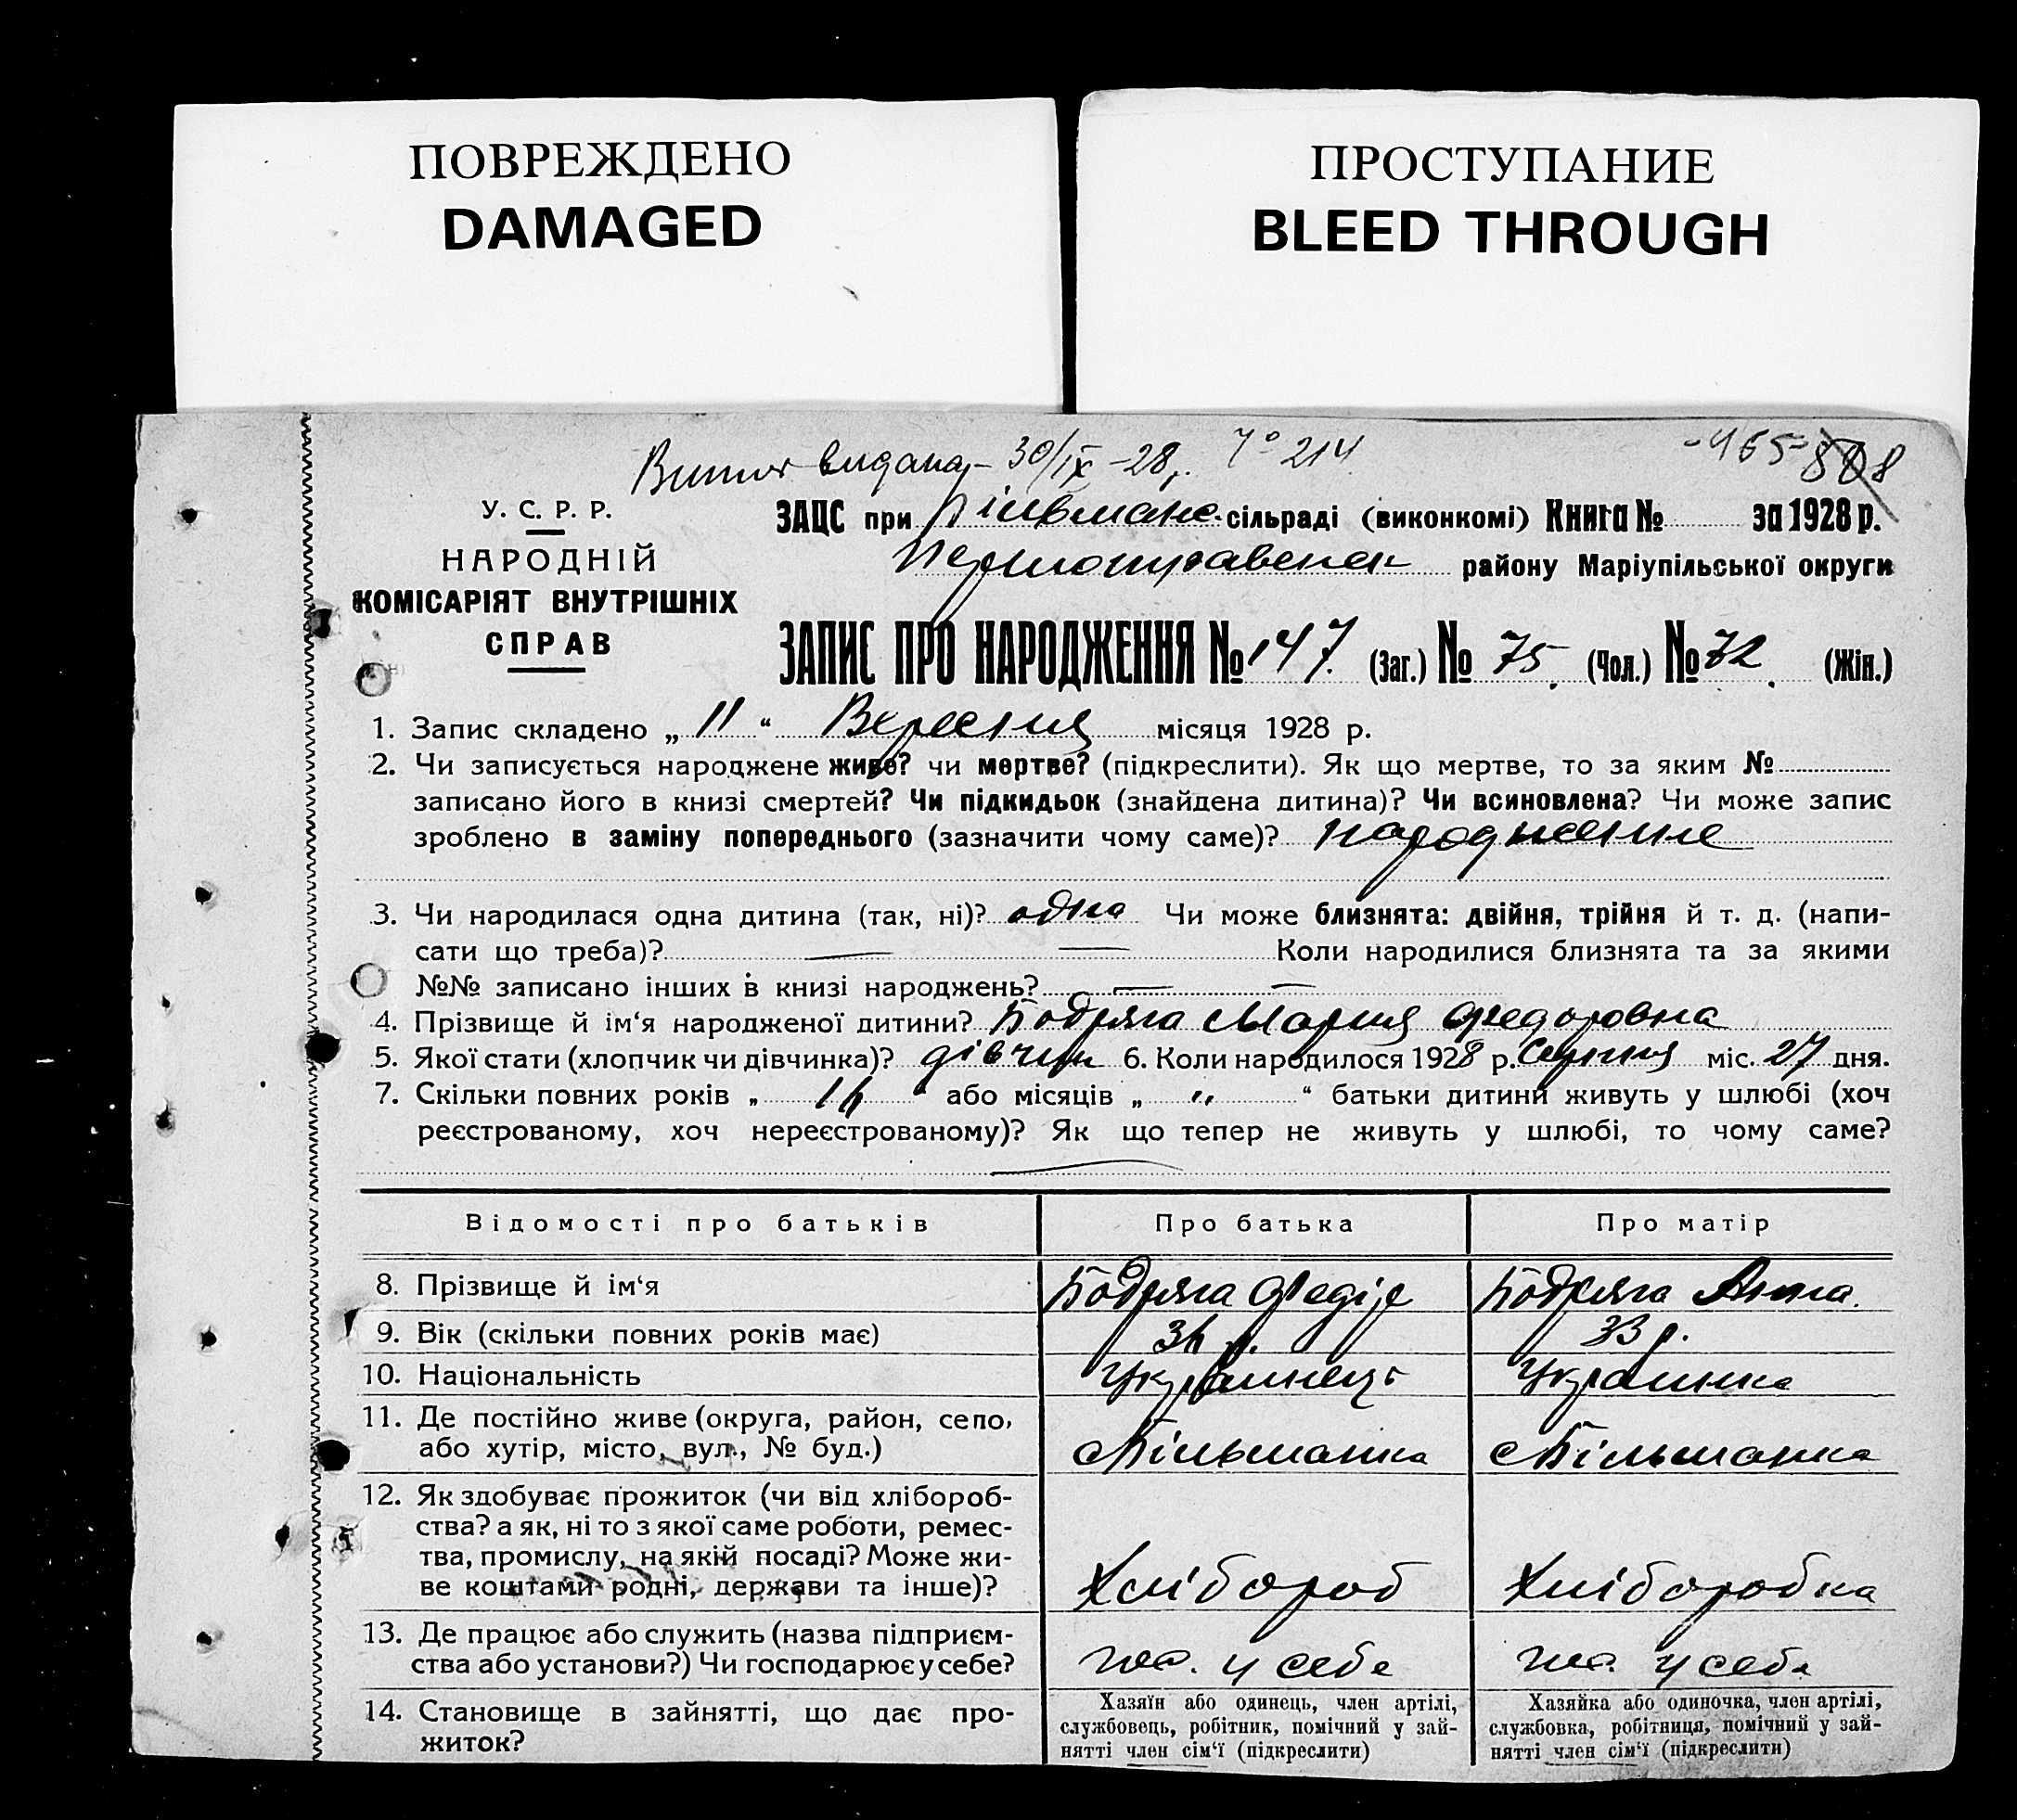 ПОВРЕЖДЕНО
DAMAGED
ПРОСТУПАНИЕ
BLEED THROUGH
видана 30/IX-28 р. № 214
-465- 808
У. С. Р. Р.
НАРОДНІЙ
КОМІСАРІЯТ ВНУТРІШНІХ
СПРАВ
ЗАЦС при Більманс. сільраді (виконкомі) Книга № за 1928 р.
району Маріупільської округи
ЗАПИС ПРО НАРОДЖЕННЯ № 147. (Заг.) № 75. (Чол.) № 72. (Жін.)
1. Запис складено „ 11 “ Вересния місяця 1928 р.
2. Чи записується народжене живе? чи мертве? (підкреслити). Як що мертве, то за яким №
записано його в книзі смертей? Чи підкидьок (знайдена дитина)? Чи всиновлена? Чи може запис
зроблено в заміну попереднього (зазначити чому саме)? народжение
3. Чи народилася одна дитина (так, ні)? одна Чи може близнята: двійня, трійня й т. д. (напи-
сати що треба)? — — Коли народилися близнята та за якими
№№ записано інших в книзі народжень? — —
4. Прізвище й ім‘я народженої дитини? Бодряга Мария Федоровна
5. Якої стати (хлопчик чи дівчинка)? дівчин 6. Коли народилося 1928 р. Серпния міс. 27 дня.
7. Скільки повних років „ “ або місяців „ " “ батьки дитини живуть у шлюбі (хоч
реєстрованому, хоч нереєстрованому)? Як що тепер не живуть у шлюбі, то чому саме?
Відомості про батьків Про батька Про матір
8. Прізвище й ім‘я Бодряга Федір Бодряга Анна.
9. Вік (скільки повних років має) р. 33 р.
10. Національність Украинець Украинка
11. Де постійно живе (округа, район, село,
або хутір, місто, вул., № буд.) сБільманка сБільманка
12. Як здобуває прожиток (чи від хлібороб-
ства? а як, ні то з якої саме роботи, ремес-
тва, промислу, на якій посаді? Може жи-
ве коштами родні, держави та інше)? Хлібороб Хліборобка
13. Де працює або служить (назва підприєм-
ства або установи?) Чи господарює у себе? гос. у себе гос. у себе
14. Становище в зайнятті, що дає про-
житок?
Хазяїн або одинець, член артілі,
службовець, робітник, помічний у зай-
нятті член сім‘ї (підкреслити)
Хазяйка або одиночка, член артілі,
службовка, робітниця, помічний у зай-
нятті член сім‘ї (підкреслити)